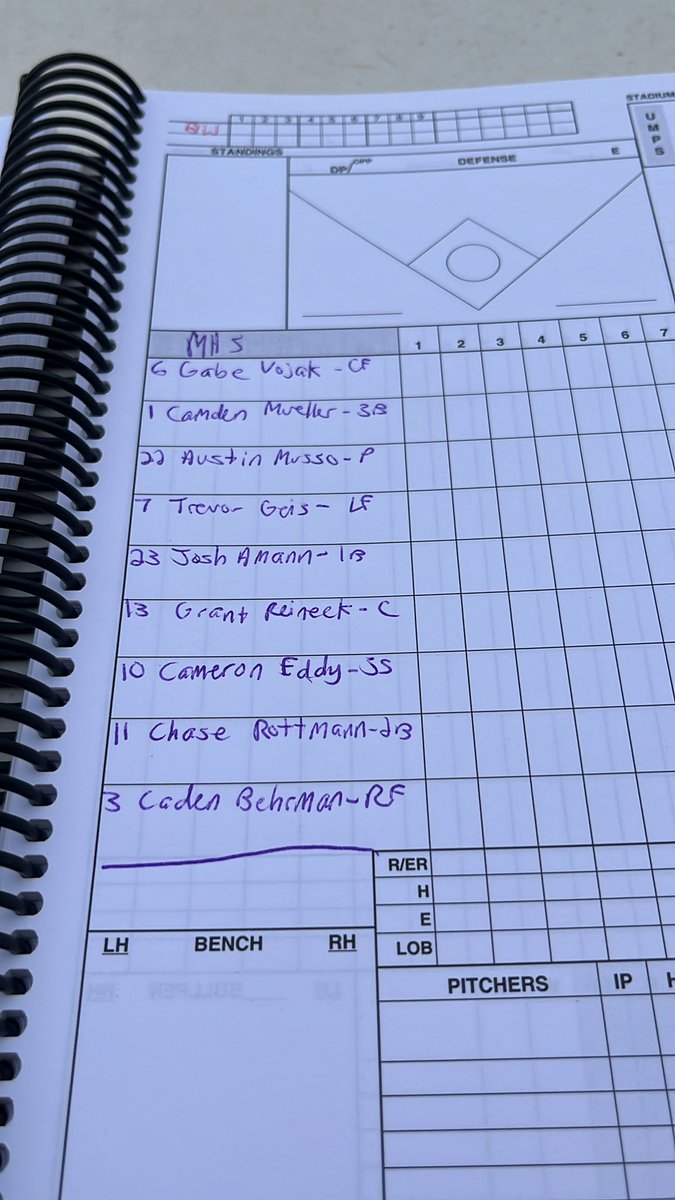 STADIUM
1 2 3 4 5 6 7 8 9
UMPS
STANDINGS
DEFENSE
E
MHS 1 2 3 4 5 6 7
6 Gabe Vojak - CF
1 Camden Mueller - 3B
22 Austin Musso - P
7 Trevor Geis - LF
23 Josh Amann - 1B
13 Grant Reineck - C
10 Cameron Eddy - SS
11 Chase Rottmann - 2B
3 Caden Behrman - RF
R/ER
H
E
LH BENCH RH LOB
PITCHERS IP H